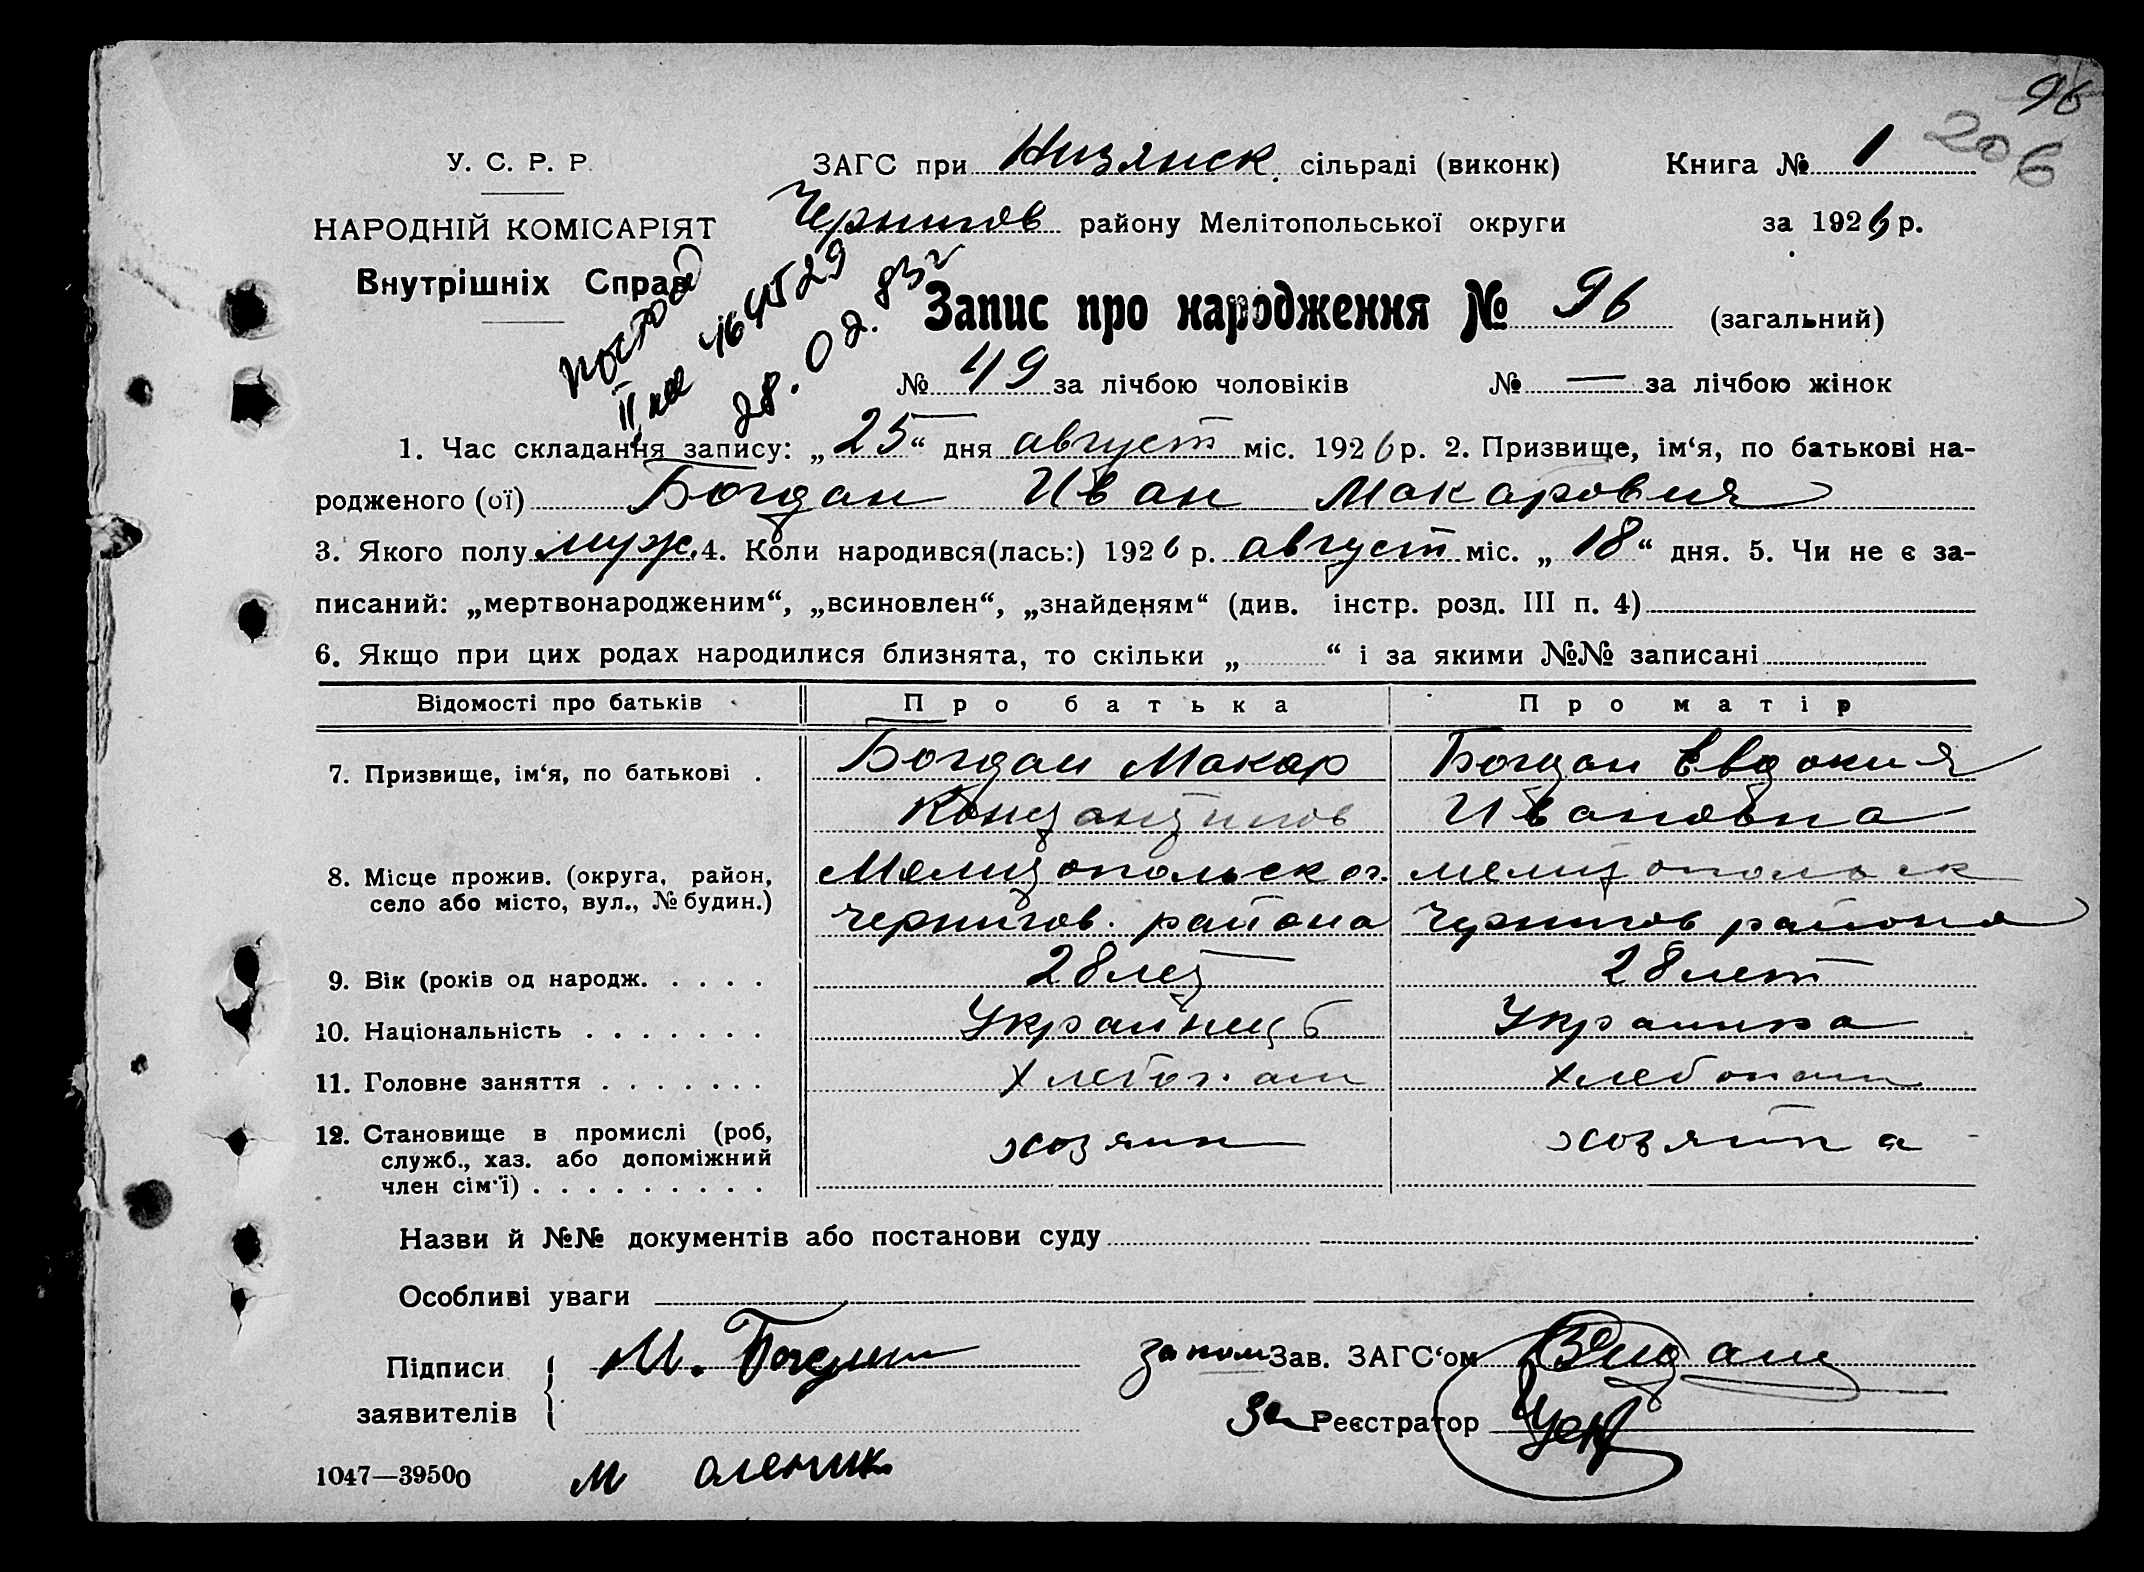 96
206
У. С. Р. Р.
ЗАГС при Низянск. сільраді (виконк)
Книга № 1
НАРОДНІЙ КОМІСАРІЯТ
Чернигов району Мелітопольської округи
за 1926 р.
Внутрішніх Справ
Запис про народження № 96 (загальний)
II на
28.02.83г
№ 49 за лічбою чоловіків № — за лічбою жінок
1. Час складання запису: „25“ дня август міс. 1926 р. 2. Призвище, ім‘я, по батькові на-
родженого (ої) Богдан Иван Макарович
3. Якого полу муж. 4. Коли народився(лась:) 1926 р. август міс. „18“ дня. 5. Чи не є за-
писаний: „мертвонародженим“, „всиновлен“, „знайденям“ (див. інстр. розд. III п. 4)
6. Якщо при цих родах народилися близнята, то скільки „ “ і за якими №№ записані
Відомості про батьків Про батька Про матір
7. Призвище, ім‘я, по батькові . Богдан Макар Богдан Евдокия
Констанжинов Ивановна
8. Місце прожив. (округа, район, Мелитопольск ог. мелитопольск
село або місто, вул., № будин.) чернигов. района Чернигов района
9. Вік (років од народж. . . . . 28 лет 28 лет
10. Національність . . . . . . . Украйнец Украинка
11. Головне заняття . . . . . . . Хлебопаш хлебопаш
12. Становище в промислі (роб, хозяин хозяйка
служб., хаз. або допоміжний
член сім‘ї) . . . . . . . . .
Назви й №№ документів або постанови суду
Особливі уваги
Підписи М. Богдан Зав. ЗАГС‘ом
заявителів За Реєстратор
1047—39500 М